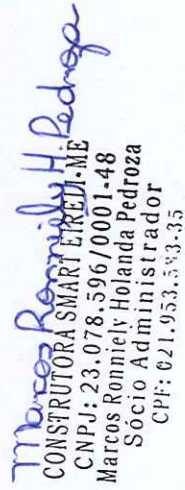 Marcos Ronniely H. Pedroza
CONSTRUTORA SMART EIRELI-ME
CNPJ: 23.078.596/0001-48
Marcos Ronniely Holanda Pedroza
Sócio Administrador
CPF: 021.953.543-35